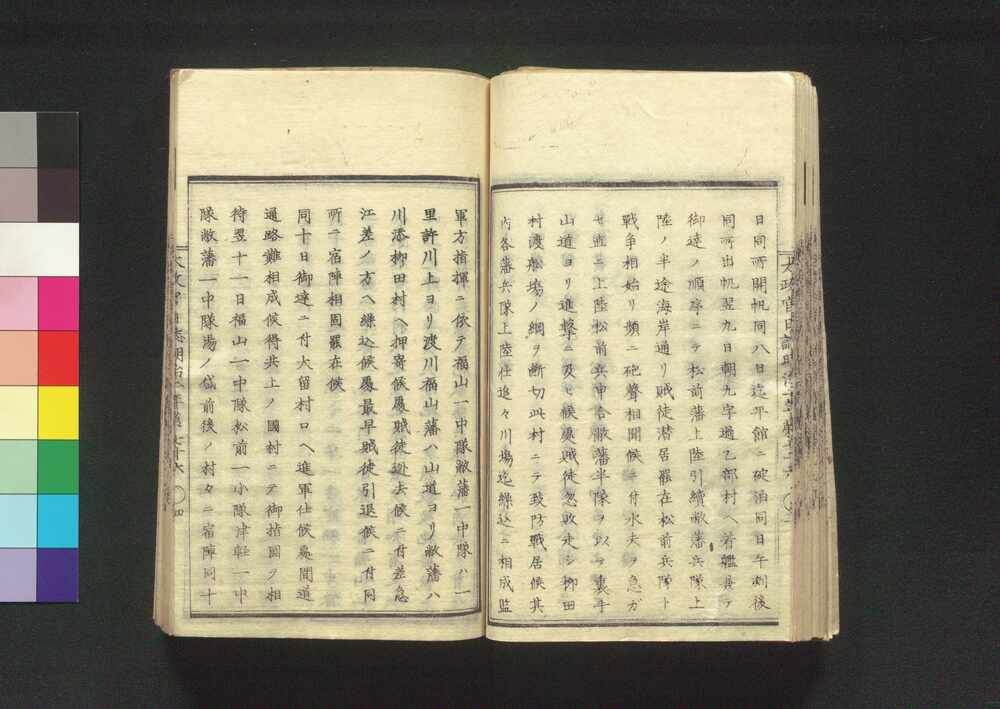 日同所開帆同八日迄平館ニ碇泊同日午刻後
同所出帆翌九日朝九字過乙部村ヘ着艦直ヲ
御達ノ順序ニテ松前藩上陸引續敝藩兵隊上
陸ノ半途海岸通リ賊徒潜居羅在松前兵隊ト
戦争相始リ頻ニ砲聲相聞候ニ付水夫ヲ急ガ
セ直ニ上陸松前兵申合敝藩半隊ヲ以テ裏手
山道ヨリ進撃ニ及ヒ候處賊徒忽敗走シ柳田
村渡舩場ノ綱ヲ断切此村ニテ致防戦居候其
内各藩兵隊上陸仕追々川場迄繰込ニ相成監
軍方指揮ニ依テ福山一中隊敝藩一中隊ハ一
里許川上ヨリ渡川福山藩ハ山道ヨリ敝藩ハ
川添柳田村ヘ押寄候處賊徒逃去候ニ付差急
江差ノ方ヘ繰込候處最早賊徒引退候ニ付同
所ニ宿陣相固羅在候
同十日御達ニ付大留村口ヘ進軍仕候處間道
通路難相成候得共上ノ國村ニテ御指圖ヲ相
待翌十一日福山一中隊松前一小隊津軽一中
隊敝藩一中隊湯ノ岱前後ノ村々ニ宿陣同十